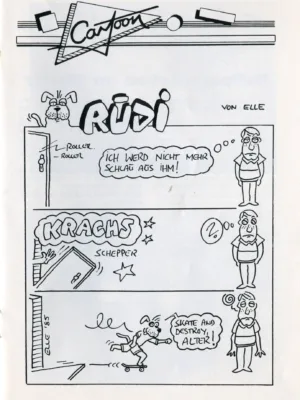 Cartoon
RÜDI
VON ELLE
- ROLLER
- ROLLER
ICH WERD NICHT MEHR
SCHLAU AUS IHM!
KRACHS
?
SCHEPPER
SKATE AND
DESTROY,
ALTER!
ELLE '85